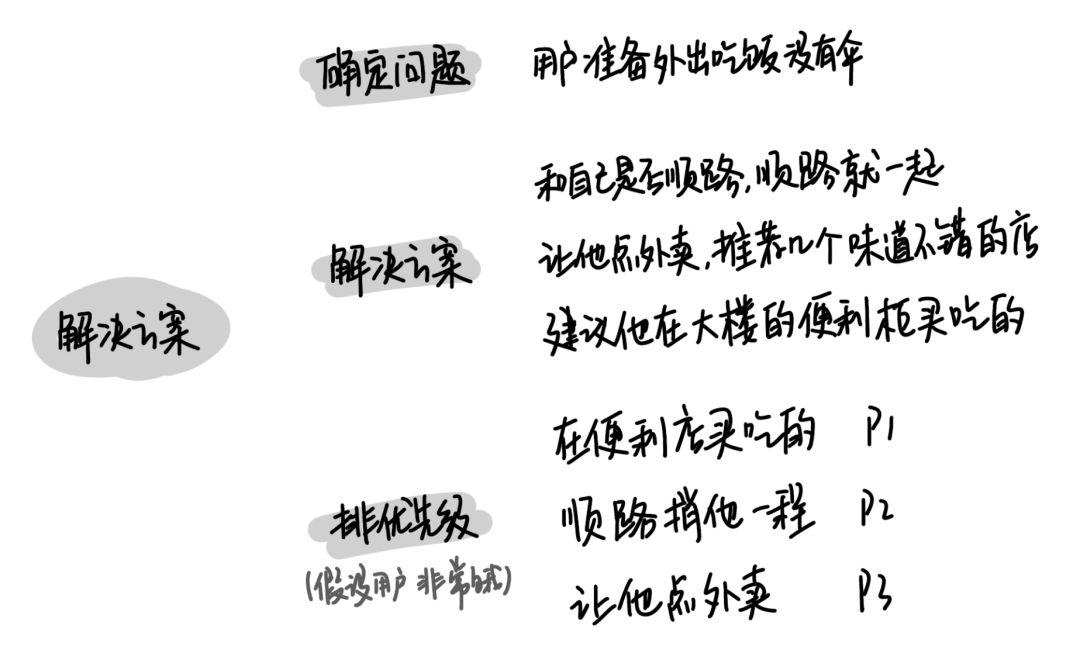 确定问题 用户准备外出吃饭没有伞
和自己是否顺路,顺路就一起
解决方案 让他点外卖,推荐几个味道不错的店
建议他在大楼的便利柜买吃的
解决方案
在便利店买吃的 P1
排优先级 顺路捎他一程 P2
(假设用户非常饿)
让他点外卖 P3